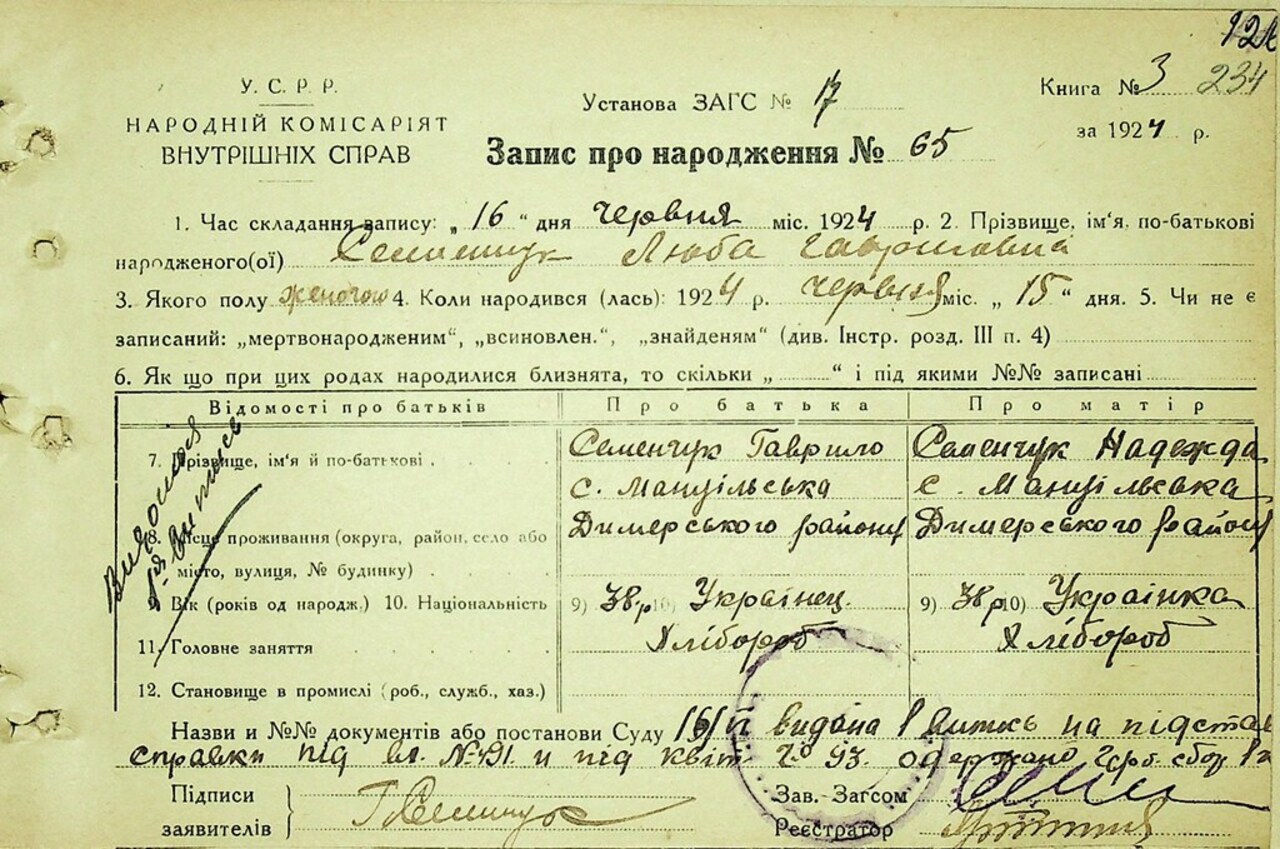 234
У. С. Р. Р.
НАРОДНІЙ КОМІСАРІЯТ
ВНУТРІШНІХ СПРАВ
Установа ЗАГС № 17
Книга № 3
за 1924 р.
Запис про народження № 65
1. Час складання запису: „16“ дня червня міс. 1924 р. 2. Прізвище, ім'я, по-батькові
народженого(ої) Семенчук Люба Гавриловна
3. Якого полу женочою 4. Коли народився (лась): 1924 р. червня міс. „15“ дня. 5. Чи не є
записаний: „мертвонародженим“, „всиновлен.“, „знайденям“ (див. Інстр. розд. III п. 4)
6. Як що при цих родах народилися близнята, то скільки „ “ і під якими №№ записані
Відомості про батьків Про батька Про матір
7. Прізвище, ім'я й по-батькові Семенчук Гаврило Семенчук Надежда
с. Мануільська с. Мануільська
Димерського району Димерського району
8. Місце проживання (округа, район, село або
місто, вулиця, № будинку)
9. Вік (років од народж.) 10. Національність 9) 38 р 10) Українец. 9) 38 р 10) Українка
11. Головне заняття Хлібороб Хлібороб
12. Становище в промислі (роб., служб., хаз.)
Назви и №№ документів або постанови Суду видана 1 випись на підстав
справки під вл. № и під квіт. 93. одержано герб. сбор
Підписи
заявителів Г Семенчук
Зав. Загсом
Реєстратор